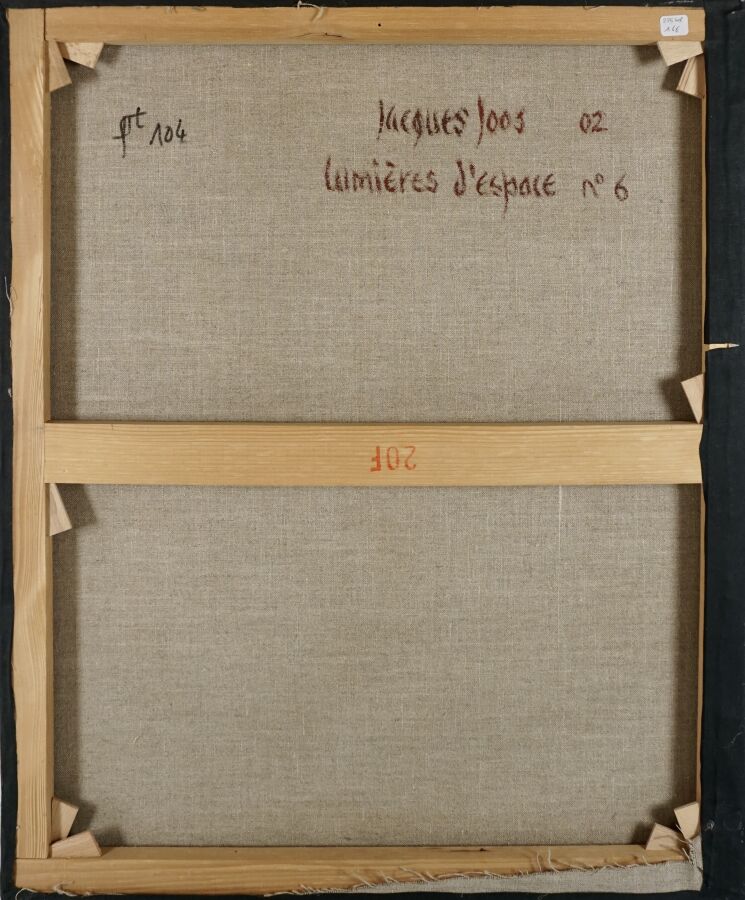 pt 104
Jacques Joos 02
Lumières d'espace n° 6
20F